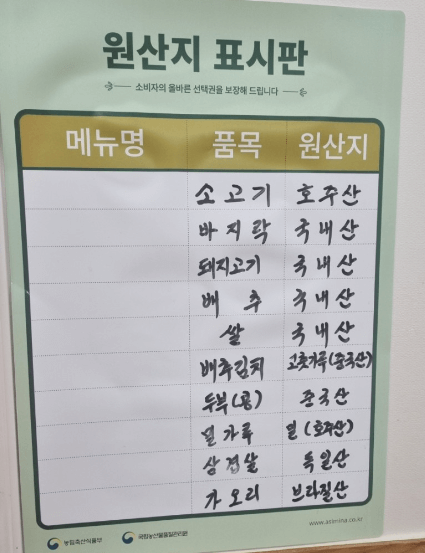 원산지 표시판
소비자의 올바른 선택권을 보장해 드립니다
메뉴명 품목 원산지
소고기 호주산
바지락 국내산
돼지고기 국내산
배추 국내산
쌀 국내산
배추김치 고춧가루(중국산)
두부(콩) 중국산
밀가루 밀(호주산)
삼겹살 독일산
가오리 브라질산
www.aterima.co.kr
농림축산식품부 국립농산물품질관리원